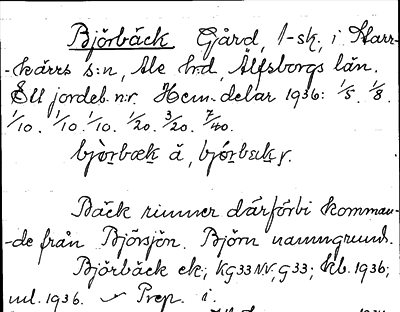 Björbäck Gård, 1-sk., i Starr-
-kärrs s:n, Ale hd, Älfsborgs län.
Ett jordeb. n:r. Hem.delar 1936: 1/5. 1/8.
1/10. 1/10. 1/10. 1/20. 3/20. 7/40.
bjòrbæk å,
Bäck rinner därförbi komman-
-de från Björsjön. Björn namngrund.
Björbäck ek; KG33NV, G33; kb. 1936;
ml. 1936. Prep. i.